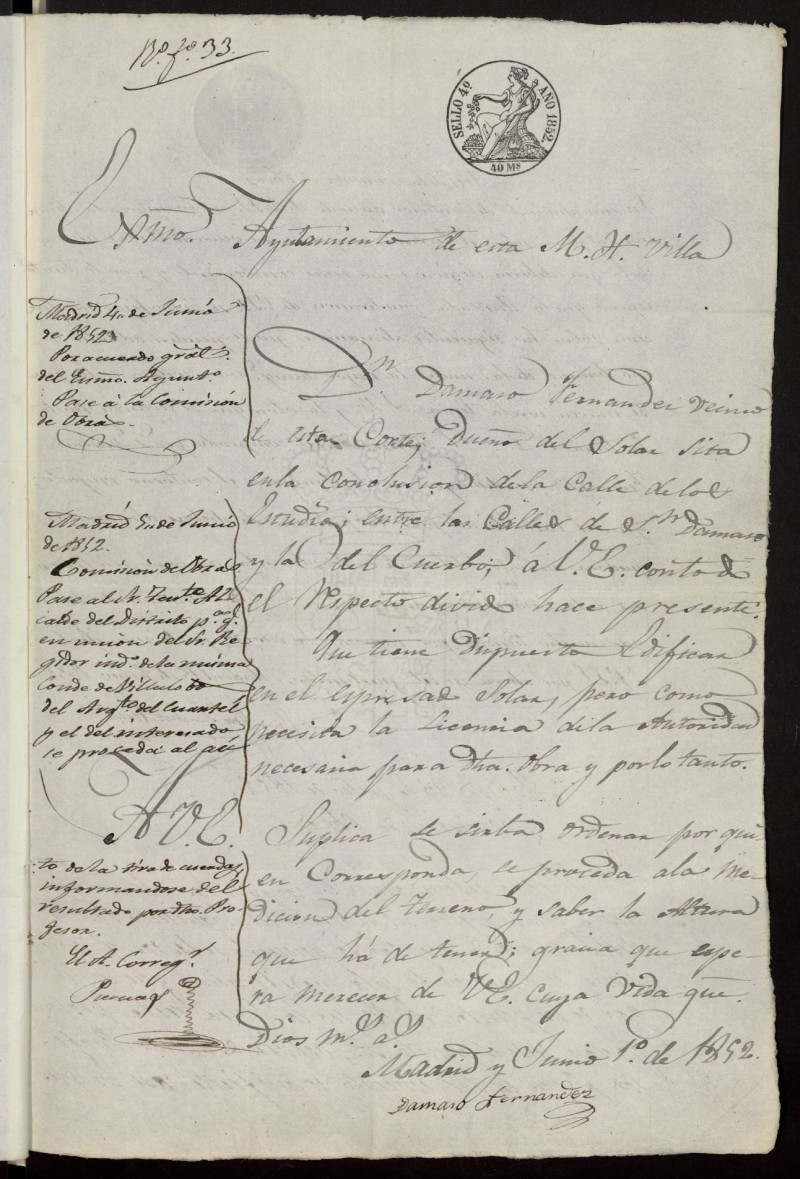 Nº. fº. 33.
SELLO 4º. AÑO 1852.
40 Ms
Exmo. Ayuntamiento de esta M. H. Villa
Madrid 4 de Junio
de 1852
Por acuerdo gral.
del Exmo. Ayunto.
Pase á la Comision
de Obras.
Madrid 5 de Junio
de 1852.
Comision de Obras
Pase al Sr. Tente. Al
calde del Distrito pa. q.
en union del Sr. Re
gidor indo. de la misma
Conde de Villalobo
del Arqto. del Cuartel
y el del interesado,
se proceda al ac
to de la tira de cuerdas,
informandose del
resultado por dho. Pro
fesor.
El A. Correg.r
Dn. Damaso Fernandez Vecino
de esta Corte; Dueño del Solar sita
en la Conclusion de la Calle de los
Estudios; entre las Calles de Sn. Damaso
y la del Cuerbo; á V. E. con todo
el Respecto divido hace presente:
Que tiene Dispuesto Edificar
en el espresado Solar, pero como
necesita la Licencia de la Autoridad
necesaria para dha. Obra y por lo tanto.
A V. E. Suplica se sirba ordenar por qui-
en Corresponda, se proceda a la me-
dicion del terreno, y saber la Altura
que há de tener; gracia que espe-
ra merecer de V.E. cuya Vida gue.
Dios ms. as.
Madrid y Junio 1º. de 1852.
Damaso Fernandez